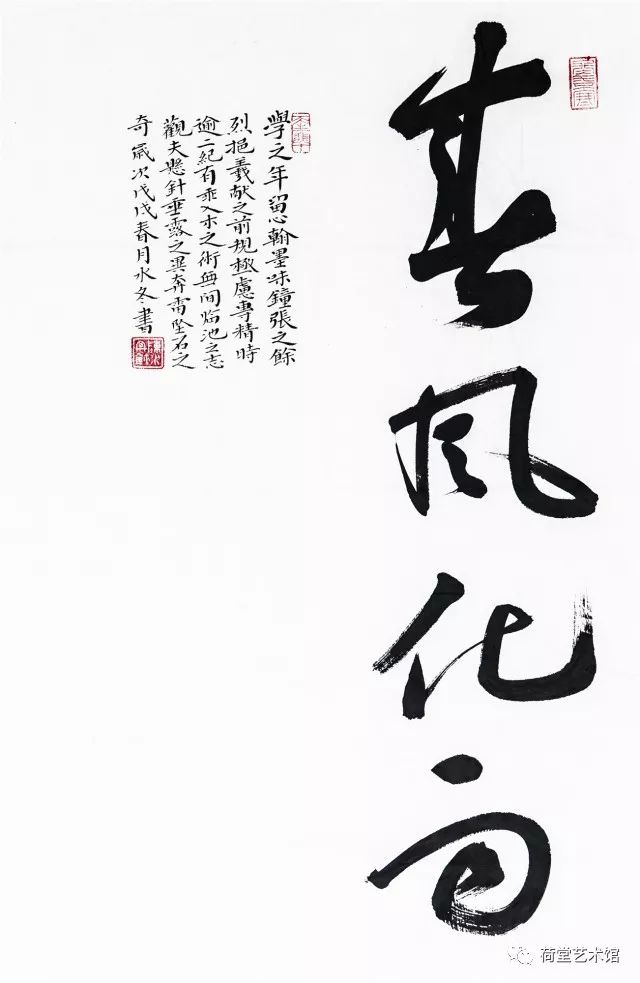 春風化雨
學之年留心翰墨味鐘張之餘
烈挹羲献之前規極慮專精時
逾二紀有乖入木之術無間臨池之志
觀夫懸針垂露之異奔雷墜石之
奇歲次戊戌春月水冬書
荷堂艺术馆